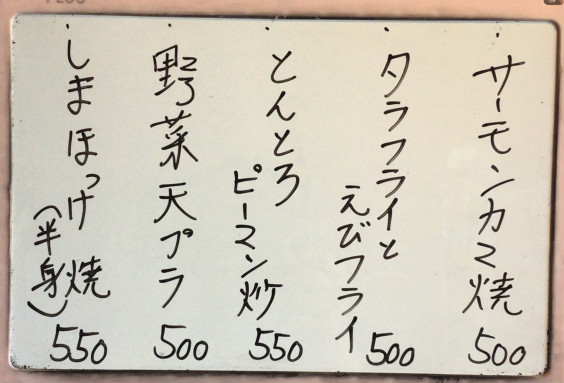 サーモンカマ焼
500
タラフライと
えびフライ
500
とんとろ
ピーマン炒
550
野菜天プラ
500
しまほっけ焼
(半身)
550